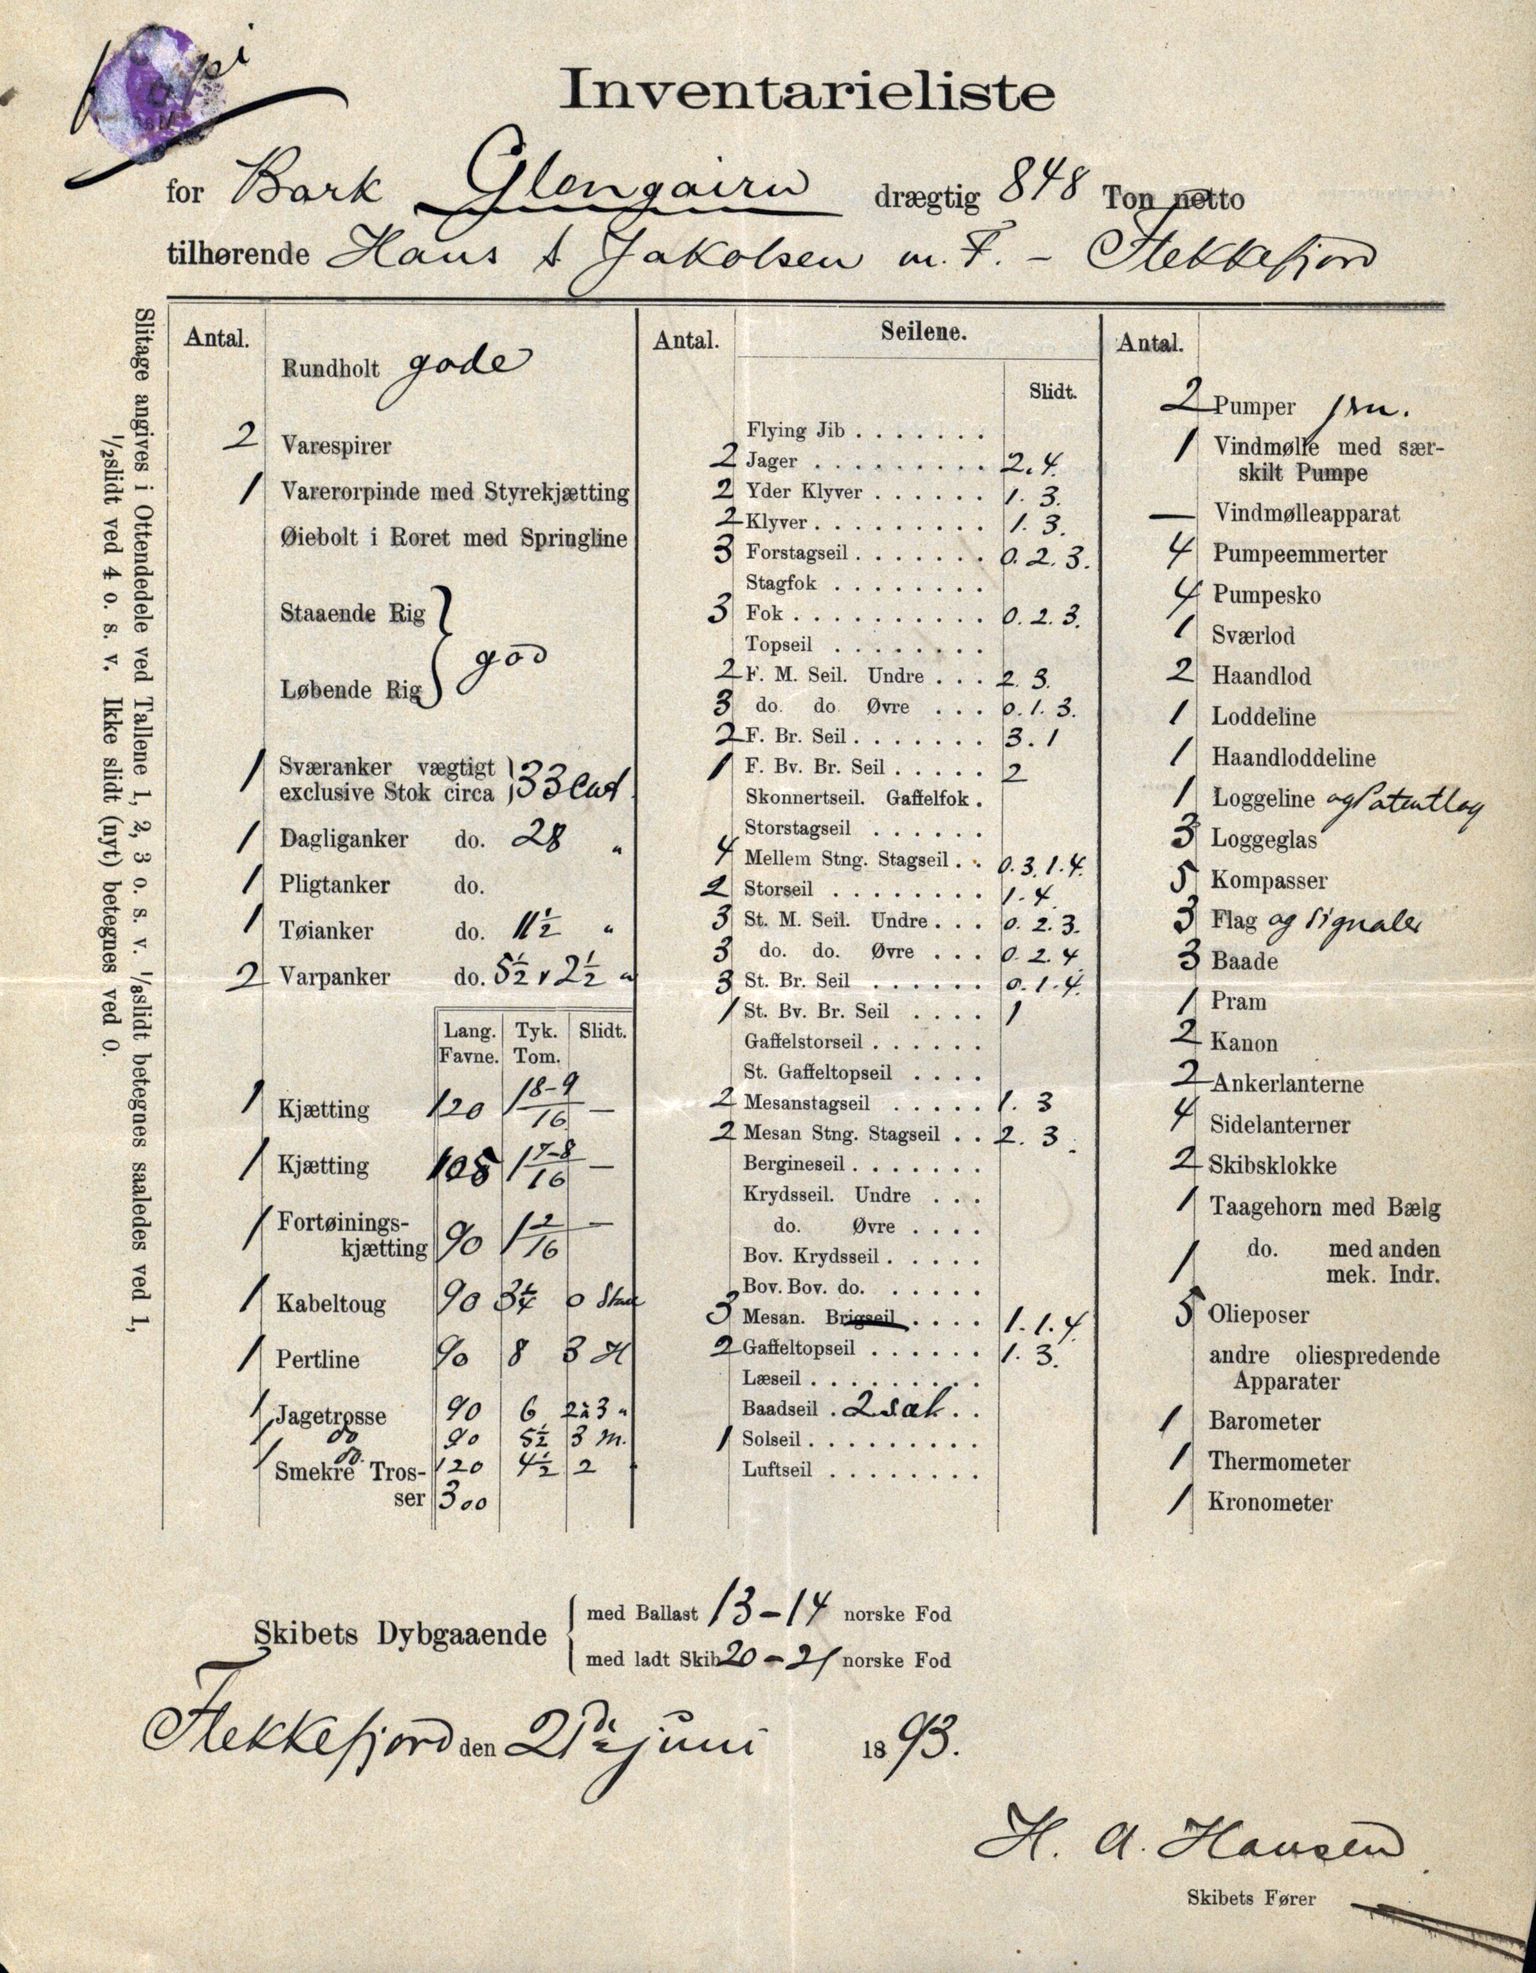 Kopi
Inventarieliste
for Bark Glengairn drægtig 848 Ton netto
tilhørende Hans A Jakobsen m. F. – Flekkefjord
Slitage angives i Ottendedele ved Tallene 1, 2, 3 o. s. v. 1/8 slidt betegnes saaledes ved 1,
1/2 slidt ved 4 o. s. v. Ikke slidt (nyt) betegnes ved 0.
Antal.
Rundholt gode
2 Varespirer
1 Varerorpinde med Styrekjætting
Øiebolt i Roret med Springline
Staaende Rig
god
Løbende Rig
1 Sværanker vægtigt
exclusive Stok circa 33 Cwt
1 Dagliganker do. 28 "
1 Pligtanker do.
1 Tøianker do. 11 1/2 "
2 Varpanker do. 5 1/2 & 2 1/2 "
Lang. Tyk. Slidt.
Favne. Tom.
1 Kjætting 120 1 8-9/16 —
1 Kjætting 105 1 7-8/16 —
1 Fortøinings-
kjætting 90 1 2/16 —
1 Kabeltoug 90 3 1/4 0
1 Pertline 90 8 3 H
1 Jagetrosse 90 6 2 à 3 "
1 do 90 5 1/2 3 M.
1 do. 120 4 1/2 2
Smekre Tros-
ser 300
Antal. Seilene.
Slidt.
Flying Jib . . . . . . .
2 Jager . . . . . . . . . 2. 4.
2 Yder Klyver . . . . . . 1. 3.
2 Klyver . . . . . . . . . 1. 3.
3 Forstagseil . . . . . . . 0. 2. 3.
Stagfok . . . . . . . .
3 Fok . . . . . . . . . . 0. 2. 3.
Topseil . . . . . . . .
2 F. M. Seil. Undre . . . 2. 3.
3 do. do Øvre . . . 0. 1. 3.
2 F. Br. Seil . . . . . . . 3. 1
1 F. Bv. Br. Seil . . . . . 2
Skonnertseil. Gaffelfok .
Storstagseil . . . . . .
4 Mellem Stng. Stagseil . . 0. 3. 1. 4.
2 Storseil . . . . . . . . 1. 4.
3 St. M. Seil. Undre . . . 0. 2. 3.
3 do. do. Øvre . . . 0. 2. 4.
3 St. Br. Seil . . . . . . 0. 1. 4.
1 St. Bv. Br. Seil . . . . 1
Gaffelstorseil . . . . . .
St. Gaffeltopseil . . . .
2 Mesanstagseil . . . . . 1. 3
2 Mesan Stng. Stagseil . . 2. 3.
Bergineseil . . . . . . .
Krydsseil. Undre . . .
do. Øvre . . . .
Bov. Krydsseil . . . . .
Bov. Bov. do. . . . . .
3 Mesan. Brigseil . . . . 1. 1. 4.
2 Gaffeltopseil . . . . . . 1. 3.
Læseil . . . . . . . . .
Baadseil . 2 sæt . .
1 Solseil . . . . . . . . .
Luftseil . . . . . . . .
Antal.
2 Pumper jrn.
1 Vindmølle med sær-
skilt Pumpe
— Vindmølleapparat
4 Pumpeemmerter
4 Pumpesko
1 Sværlod
2 Haandlod
1 Loddeline
1 Haandloddeline
1 Loggeline og Patentlog
3 Loggeglas
5 Kompasser
3 Flag og signaler
3 Baade
1 Pram
2 Kanon
2 Ankerlanterne
4 Sidelanterner
2 Skibsklokke
1 Taagehorn med Bælg
1 do. med anden
mek. Indr.
5 Olieposer
andre oliespredende
Apparater
1 Barometer
1 Thermometer
1 Kronometer
Skibets Dybgaaende
med Ballast 13 – 14 norske Fod
med ladt Skib 20 – 21 norske Fod
Flekkefjord den 21de juni 1893.
H. A. Hansen
Skibets Fører